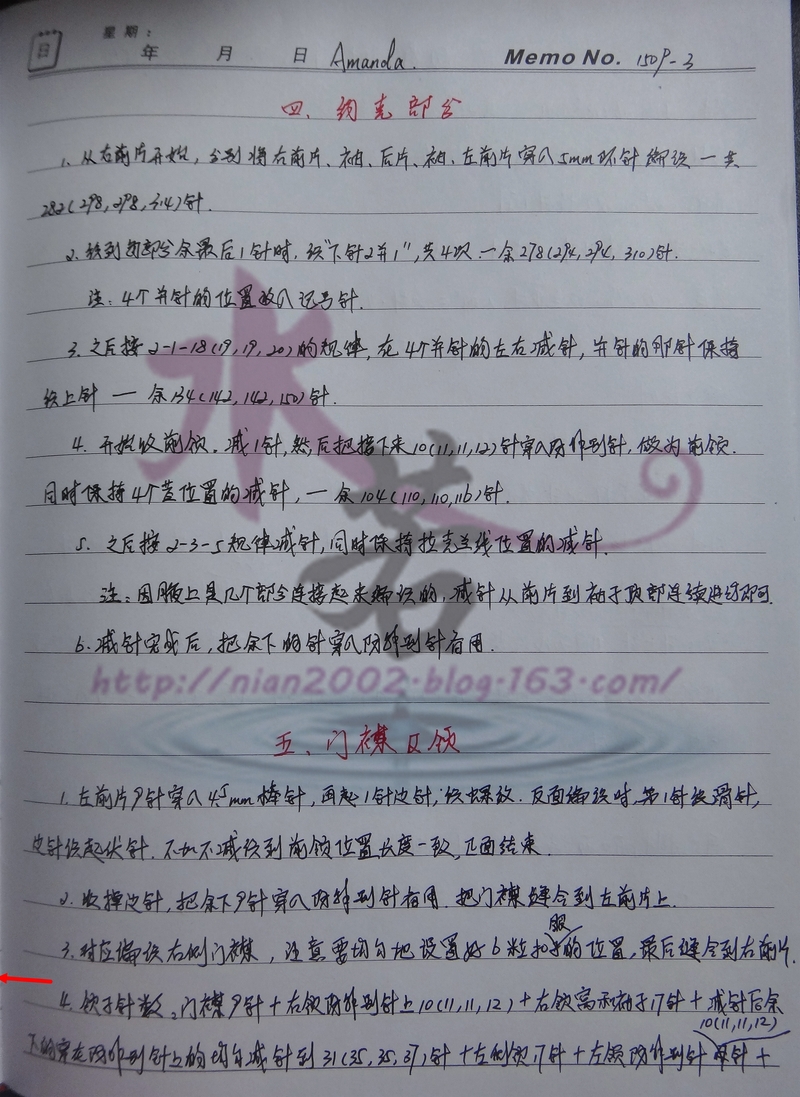 星期:
日 年 月 日 Amanda. Memo No. 150P-3
四、约克部分
1、从右前片开始,分别将右前片、袖、后片、袖、左前片穿入5mm环针编织一共
282(298,298,314)针.
2、织到每部分余最后1针时,织"下针2并1",共4次.一余278(294,294,310)针.
注:4个并针的位置放入记号针.
3、之后按2-1-18(19,19,20)的规律,在4个并针的左右减针,并针的那针保持
织上针 一 余134(142,142,150)针.
4、开始收前领。减1针,然后把接下来10(11,11,12)针穿入防解别针,做为前领.
同时保持4个位置的减针,一余104(110,110,116)针.
5、之后按2-3-5规律减针,同时保持拉克兰线位置的减针.
注:因服上是几个部分连接起来编织的,减针从前片到袖子顶部连续进行即可.
6、减针完成后,把余下的针穿入防解别针备用.
水若
http://nian2002.blog.163.com/
五、门襟及领
1、左前片9针穿入4.5mm棒针,再起1针边针,织螺纹.反面编织时,第1针织滑针,
边针织起伏针.不加不减织到前领位置长度一致,正面结束.
2、收掉边针,把余下9针穿入防解别针备用.把门襟缝合到左前片上.
3、对应编织右侧门襟,注意要均匀地设置好6粒扣眼的位置,最后缝合到右前片.
4、领子针数:门襟9针+右领防解别针上10(11,11,12)+右领窝和袖子17针+减针后余
下的穿在防解别针上的均匀减针到31(35,35,37)针+左侧领17针+左领防解别针 10(11,11,12) 单针+